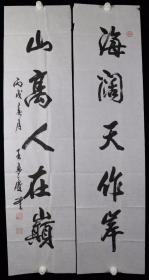 海阔天作岸
山高人在巅
丙戌春月